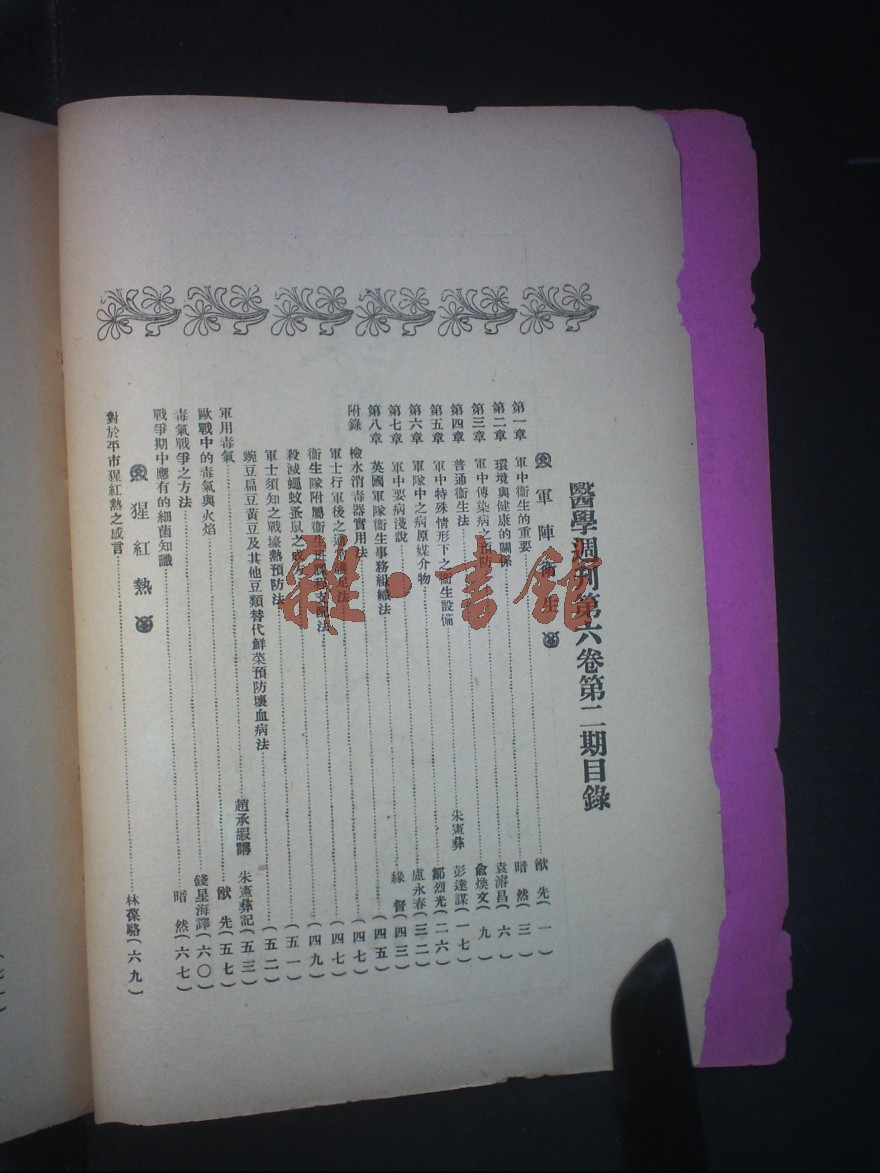 醫學週刊第六卷第二期目錄
軍陣衛生
第一章 軍中衛生的重要 猷先(一)
第二章 環境與健康的關係 暗然(三)
第三章 軍中傳染病之預防 袁濬昌(六)
第四章 普通衛生法 俞煥文(九)
第五章 軍中特殊情形下之衛生設備 朱憲彝 彭達謀(一七)
第六章 軍隊中之病原媒介物 鄒烈光(二六)
第七章 軍中要病淺說 盧永春(三二)
第八章 英國軍隊衛生事務組織法 綠督(四三)
附錄 檢水消毒器實用法 (四五)
軍士行軍後之 法 (四七)
衛生隊附屬衛生班職務支配法 (四七)
殺滅蠅蚊蚤鼠之 方 (四九)
軍士須知之戰壕熱預防法 (五一)
豌豆扁豆黃豆及其他豆類替代鮮菜預防壞血病法 (五二)
軍用毒氣 趙承嘏講 朱憲彝記(五三)
歐戰中的毒氣與火焰 猷先(五七)
毒氣戰爭之方法 錢星海譯(六〇)
戰爭期中應有的細菌知識 暗然(六七)
猩紅熱
對於平市猩紅熱之感言 林葆駱(六九)
雜·書館